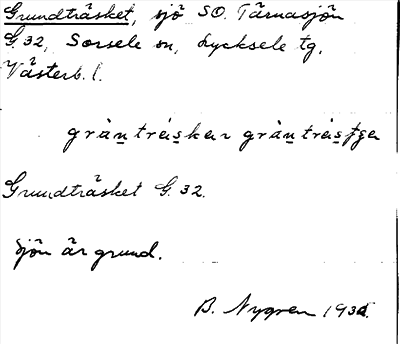 Grundträsket, sjö SO. Tärnasjön
G 32, Sorsele sn, Lycksele tg,
Västerb. l.
Grundträsket G. 32.
Sjön är grund.
B. Nygren 193